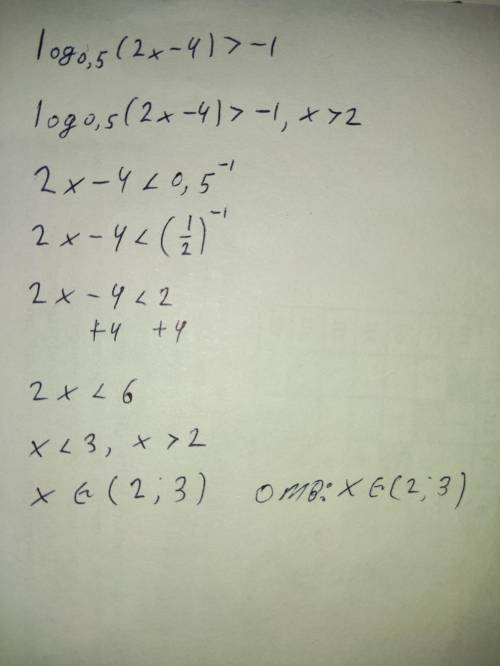 log₀,₅(2x-4)>-1
log₀,₅(2x-4)>-1, x>2
2x-4<0,5⁻¹
2x-4<(1/2)⁻¹
2x-4<2
+4 +4
2x<6
x<3, x>2
x∈(2;3) отв: x∈(2;3)